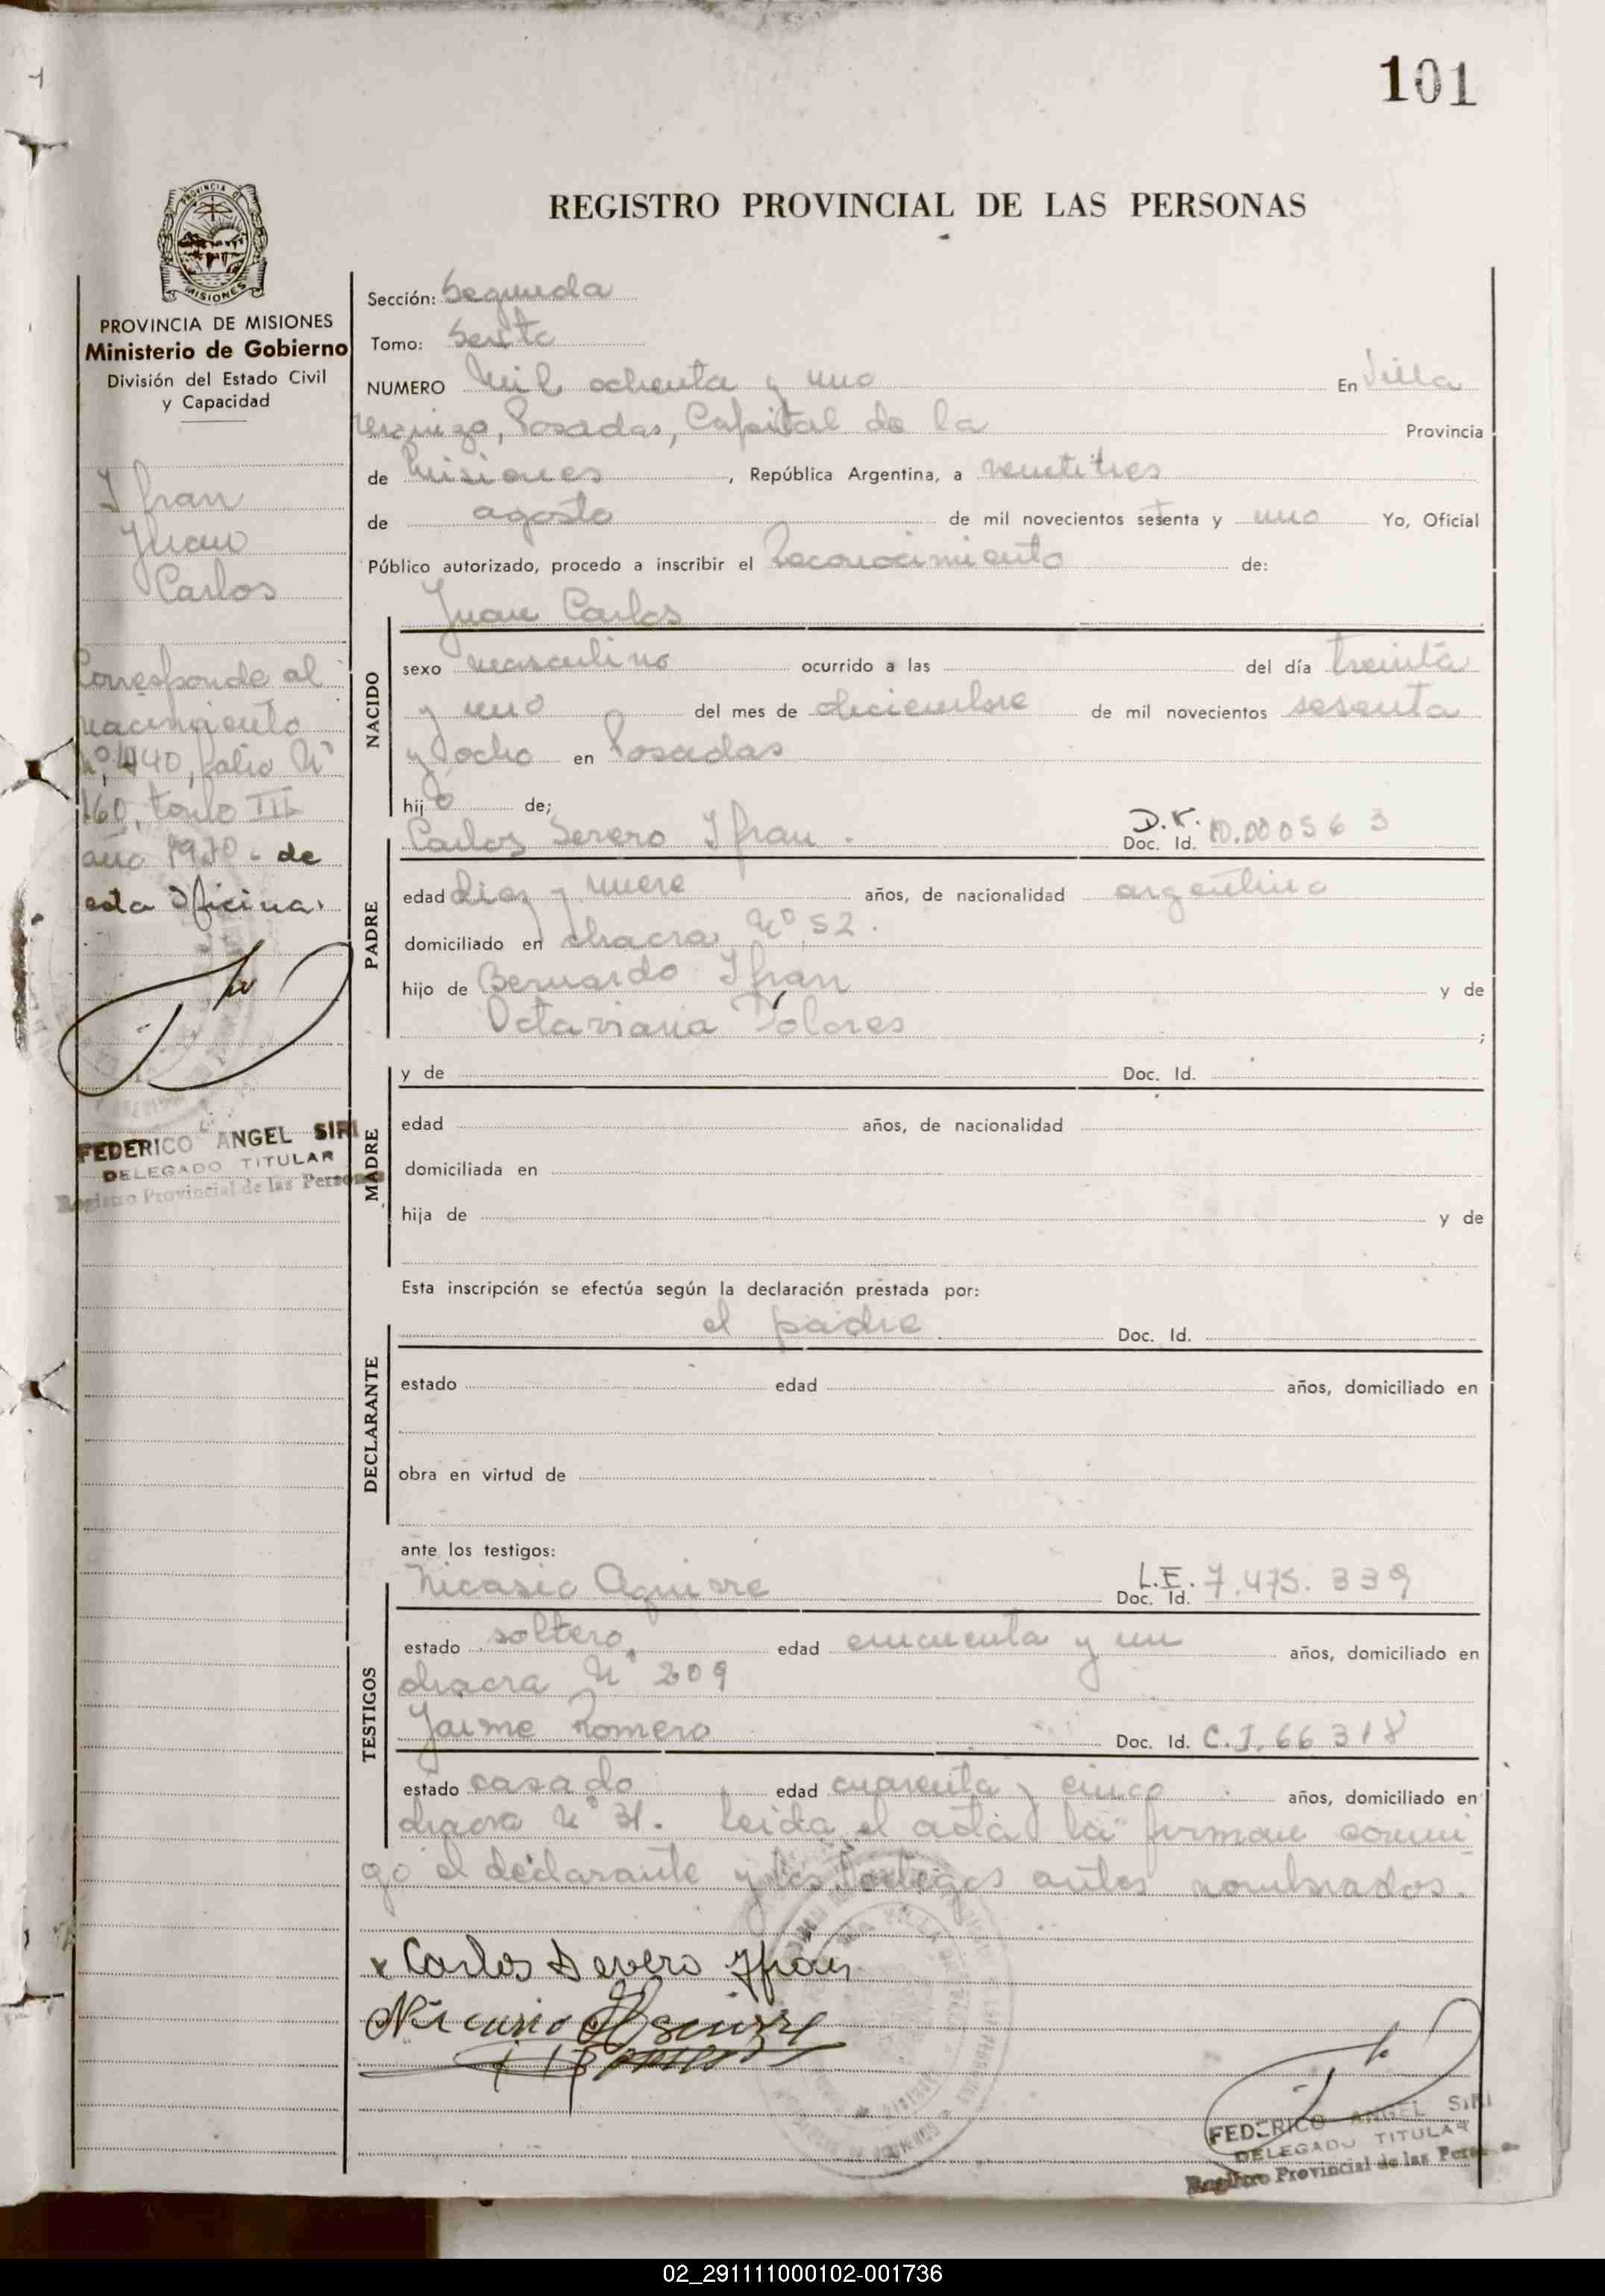 101
REGISTRO PROVINCIAL DE LAS PERSONAS
PROVINCIA DE MISIONES
MISIONES
PROVINCIA DE MISIONES
Ministerio de Gobierno
División del Estado Civil
y Capacidad
Ifran
Juan
Carlos
Corresponde al
nacimiento
Nº 440, folio Nº
160, tomo III
año 1970. de
esta Oficina.
FEDERICO ANGEL SIRI
DELEGADO TITULAR
Registro Provincial de las Personas
Sección: Segunda
Tomo: Sexto
NUMERO Mil ochenta y uno En Villa
Urquiza, Posadas, Capital de la Provincia
de Misiones, República Argentina, a veintitres
de agosto de mil novecientos setenta y uno Yo, Oficial
Público autorizado, procedo a inscribir el Reconocimiento de:
Juan Carlos
NACIDO
sexo masculino ocurrido a las del día treinta
y uno del mes de diciembre de mil novecientos sesenta
y ocho en Posadas
hijo de;
Carlos Severo Ifran. Doc. Id. 10.000563
PADRE
edad diez y nueve años, de nacionalidad argentino
domiciliado en chacra Nº 52.
hijo de Bernardo Ifran y de
Octaviana Dolores ;
MADRE
y de Doc. Id.
edad años, de nacionalidad
domiciliada en
hija de y de
Esta inscripción se efectúa según la declaración prestada por:
DECLARANTE
el padre Doc. Id.
estado edad años, domiciliado en
obra en virtud de
ante los testigos:
TESTIGOS
Nicasio Aguirre L.E. Doc. Id. 7.475.339
estado soltero, edad cincuenta y un años, domiciliado en
chacra Nº 209
Jaime Romero Doc. Id. C.I. 66318
estado casado edad cuarenta y cinco años, domiciliado en
chacra Nº 31. Leida el acta la firman conmi
go el declarante y los testigos antes nombrados.
x Carlos Severo Ifran
Nicasio Aguirre
FEDERICO ANGEL SIRI
DELEGADO TITULAR
Registro Provincial de las Personas
02_291111000102-001736